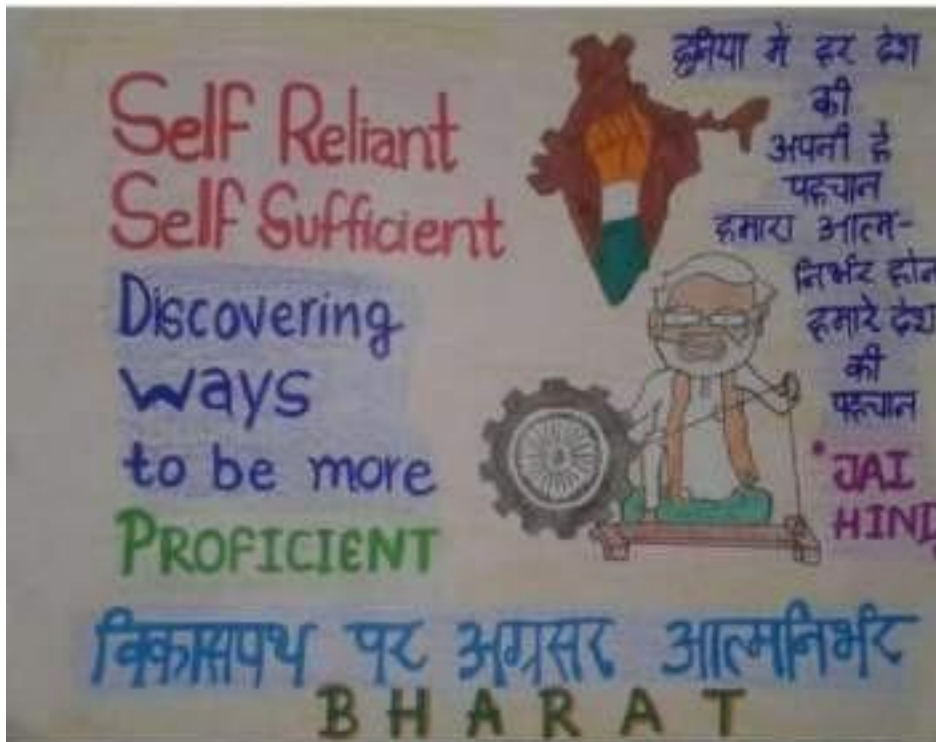 Self Reliant
Self Sufficient
Discovering
Ways
to be more
PROFICIENT
दुनिया में हर देश
की
अपनी है
पहचान
हमारा आत्म-
निर्भर होन
हमारे देश
की
पहचान
JAI
HIND
विकासपथ पर अग्रसर आत्मनिर्भर
BHARAT